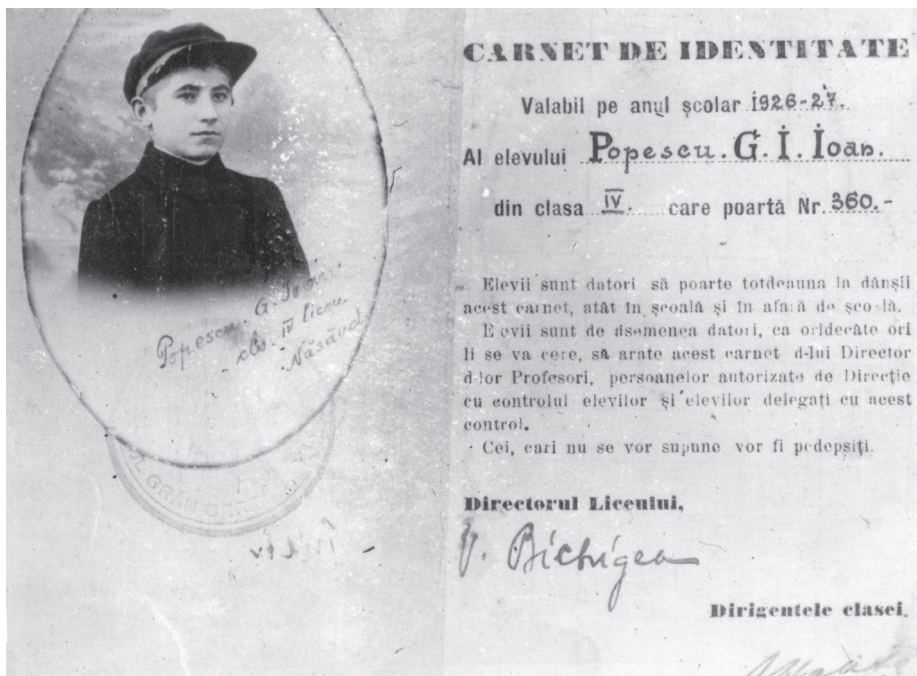 Popescu. G. Ioan
cls. IV liceu
Năsăud
CARNET DE IDENTITATE
Valabil pe anul școlar 1926-27.
Al elevului Popescu. G. I. Ioan.
din clasa IV. care poartă Nr. 360.-
Elevii sunt datori să poarte totdeauna la dânșii
acest carnet, atât în școală și în afară de școlă.
Elevii sunt de asemenea datori, ca oridecâte ori
li se va cere, să arate acest carnet d-lui Director
d-lor Profesori, persoanelor autorizate de Direcție
cu controlul elevilor și elevilor delegați cu acest
control.
Cei, cari nu se vor supune vor fi pedepsiți.
Directorul Liceului,
V. Bichigea
Dirigentele clasei,